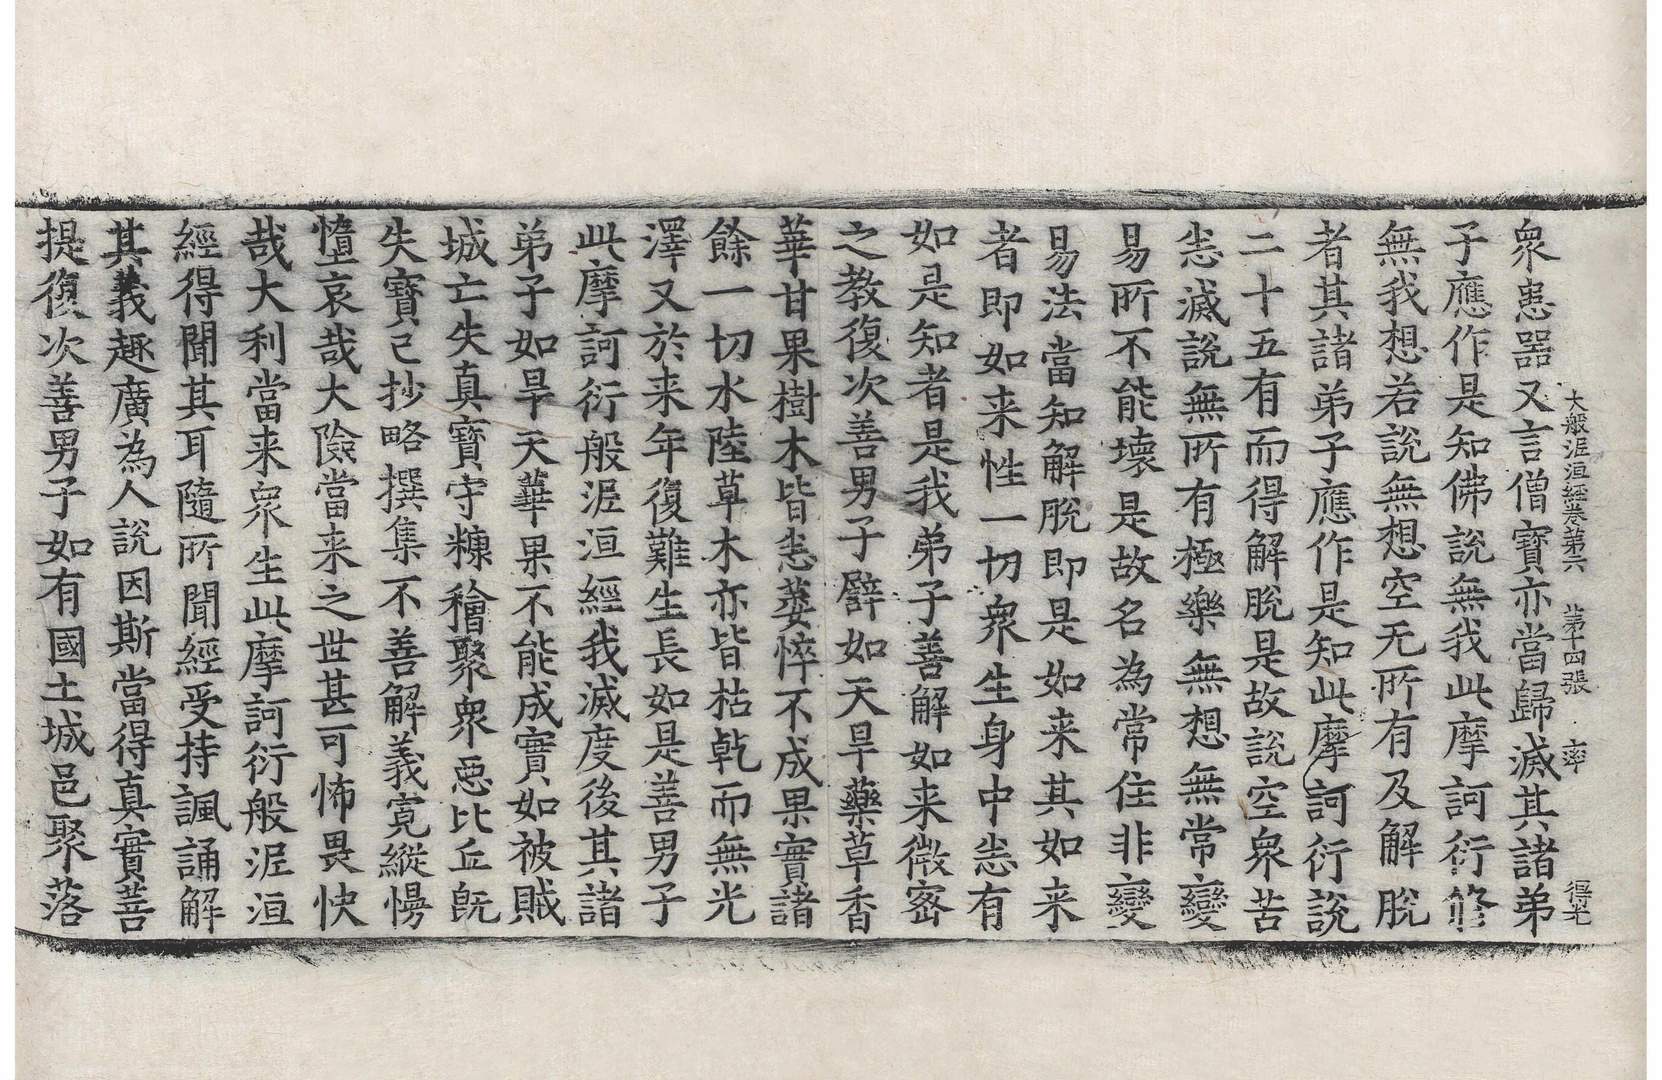 大般泥洹經卷第六 第十四張 率 得光
衆患器又言僧寶亦當歸滅其諸弟
子應作是知佛說無我此摩訶衍修
無我想若說無想空无所有及解脫
者其諸弟子應作是知此摩訶衍說
二十五有而得解脫是故說空衆苦
悉滅說無所有極樂無想無常變
易所不能壞是故名為常住非變
易法當知解脫即是如来其如来
者即如来性一切衆生身中悉有
如是知者是我弟子善解如来微密
之教復次善男子譬如天旱藥草香
華甘果樹木皆悉萎悴不成果實諸
餘一切水陸草木亦皆枯乾而無光
澤又於来年復難生長如是善男子
此摩訶衍般泥洹經我滅度後其諸
弟子如旱天華果不能成實如被賊
城亡失真寶守糠䅉聚衆惡比丘旣
失寶已抄略撰集不善解義寬縱慢
憧哀哉大險當来之世甚可怖畏快
哉大利當来衆生此摩訶衍般泥洹
經得聞其耳隨所聞經受持諷誦解
其義趣廣為人說因斯當得真實菩
提復次善男子如有國土城邑聚落